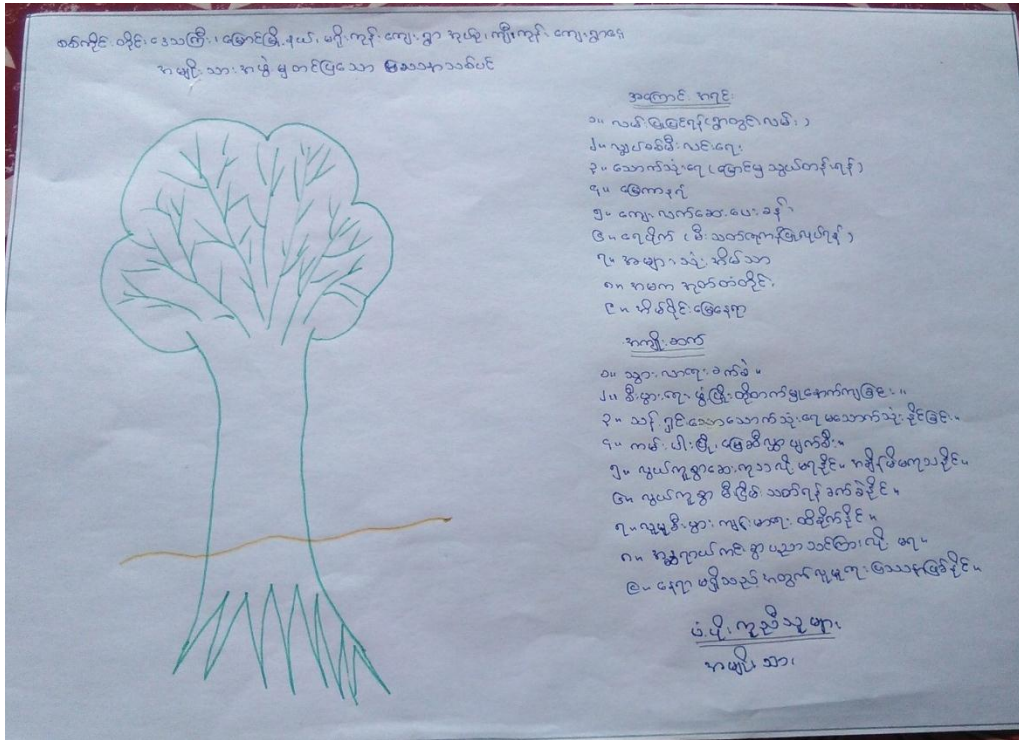 စစ်ကိုင်းတိုင်းဒေသကြီး၊ မြောင်မြို့နယ်၊ မရိုးကုန်းကျေးရွာအုပ်စု၊ ကျီကုန်းကျေးရွာ၏
အမျိုးသားအဖွဲ့မှတင်ပြသော ပြဿနာသစ်ပင်
အကြောင်းအရင်း
၁။ လမ်းပြုပြင်ရန်(ရွာတွင်းလမ်း)
၂။ လျှပ်စစ်မီးလင်းရေး
၃။ သောက်သုံးရေ (မြောင်မှသွယ်တန်းရန်)
၄။ မြေကာနရံ
၅။ ကျေးလက်ဆေးပေးခန်း
၆။ ရေပိုက် (မီးသတ်ရေကန်ပြုလုပ်ရန်)
၇။ အများသုံးအိမ်သာ
၈။ အမက အုတ်တံတိုင်း
၉။ အိမ်ဝိုင်းမြေနေရာ
အကျိုးဆက်
၁။ သွားလာရေးခက်ခဲ။
၂။ စီးပွားရေးဖွံ့ဖြိုးတိုးတက်မှုနောက်ကျခြင်း။
၃။ သန့်ရှင်းသောသောက်သုံးရေမသောက်သုံးနိုင်ခြင်း။
၄။ ကမ်းပါးပြို၊ မြေဆီလွှာပျက်စီး။
၅။ လွယ်ကူစွာဆေးကုသလို့မရနိုင်။ အချိန်မီမကုသနိုင်။
၆။ လွယ်ကူစွာ မီးငြိမ်းသတ်ရန်ခက်ခဲနိုင်။
၇။ လူမှုစီးပွား ကျန်းမာရေးထိခိုက်နိုင်။
၈။ အန္တရာယ်ကင်းစွာပညာသင်ကြားလို့မရ။
၉။ နေရာမရှိသည့်အတွက်လူမှုရေးပြဿနာဖြစ်နိုင်။
ပံ့ပိုးကူညီသူများ
အမျိုးသား